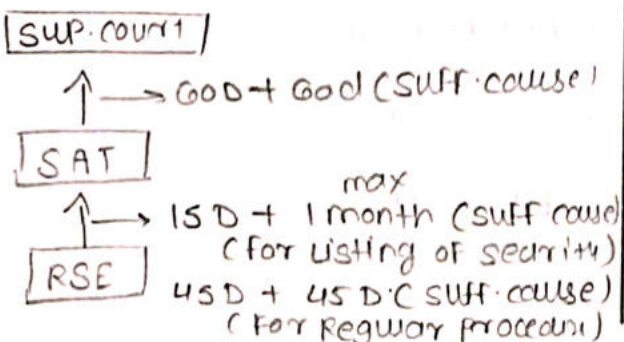 SUP. COURT
60D + 60d (Suff. cause)
SAT
max
15D + 1 month (suff cause)
(for Listing of security)
RSE
45D + 45D (suff. cause)
(For Regular procedure)